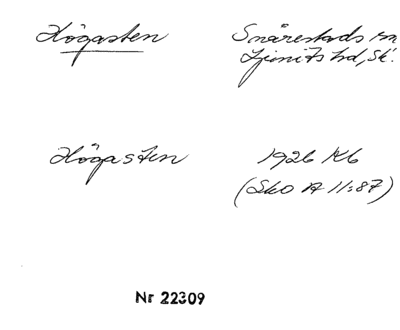 Högasten
Snårestads sn
Ljunits hd, Sk.
Högasten
1926 Kb
(Sko A 11:87)
Nr 22309